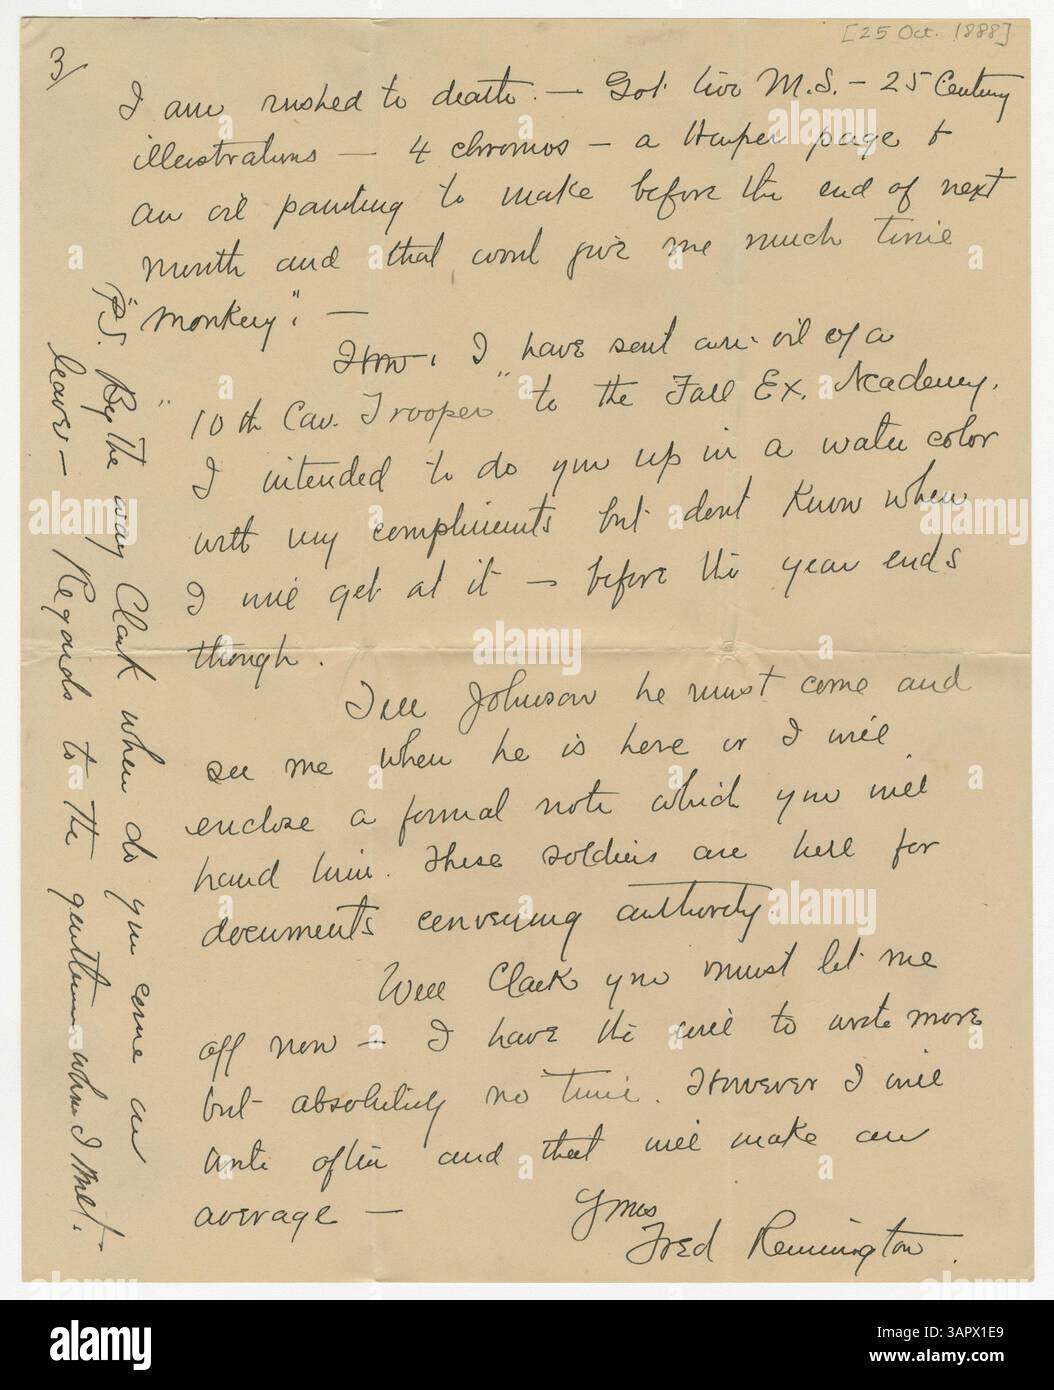 [25 Oct. 1888]
3/
I am rushed to death. — Got two M.S. — 25 Century
illustrations — 4 chromos — a Harper page &
an oil painting to make before the end of next
month and that wont give me much time
"monkey". —
How. I have sent an oil of a
"10th Cav. Trooper" to the Fall Ex. Academy.
I intended to do you up in a water color
with my compliments but dont know when
I will get at it — before the year ends
though.
Tell Johnson he must come and
see me when he is here or I will
enclose a formal note which you will
hand him. These soldiers are hell for
documents conveying authority.
Well Clark you must let me
off now — I have the will to write more
but absolutely no time. However I will
write often and that will make an
average —
Yours
Fred Remington.
P.S. By the way Clark when do you come on
leave — Regards to the gentlemen whom I met.
alamy
alamy
Image ID: 3APX1E9
www.alamy.com